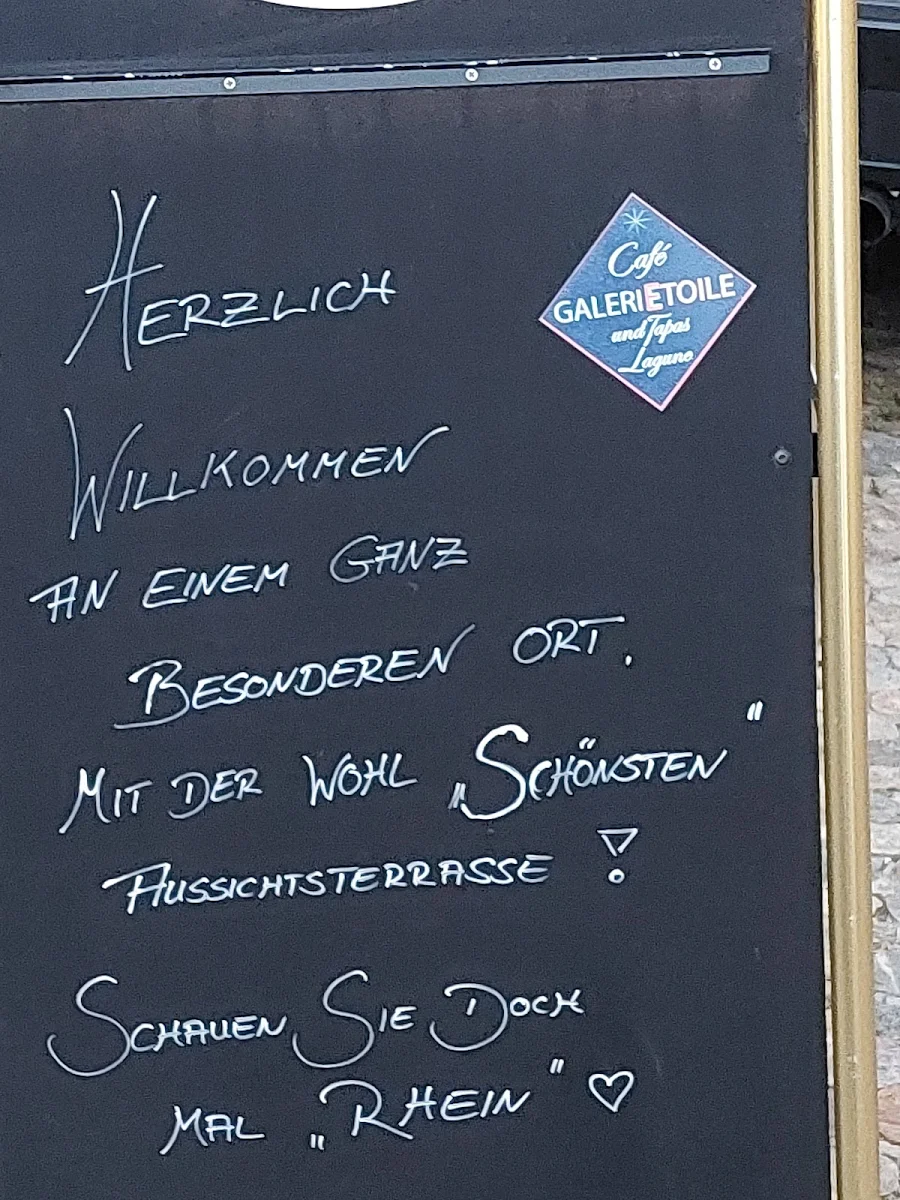 HERZLICH
Café
GALERIETOILE
und Tapas
Lagune
WILLKOMMEN
AN EINEM GANZ
BESONDEREN ORT.
MIT DER WOHL „SCHÖNSTEN"
AUSSICHTSTERRASSE !
SCHAUEN SIE DOCH
MAL „RHEIN" ♡